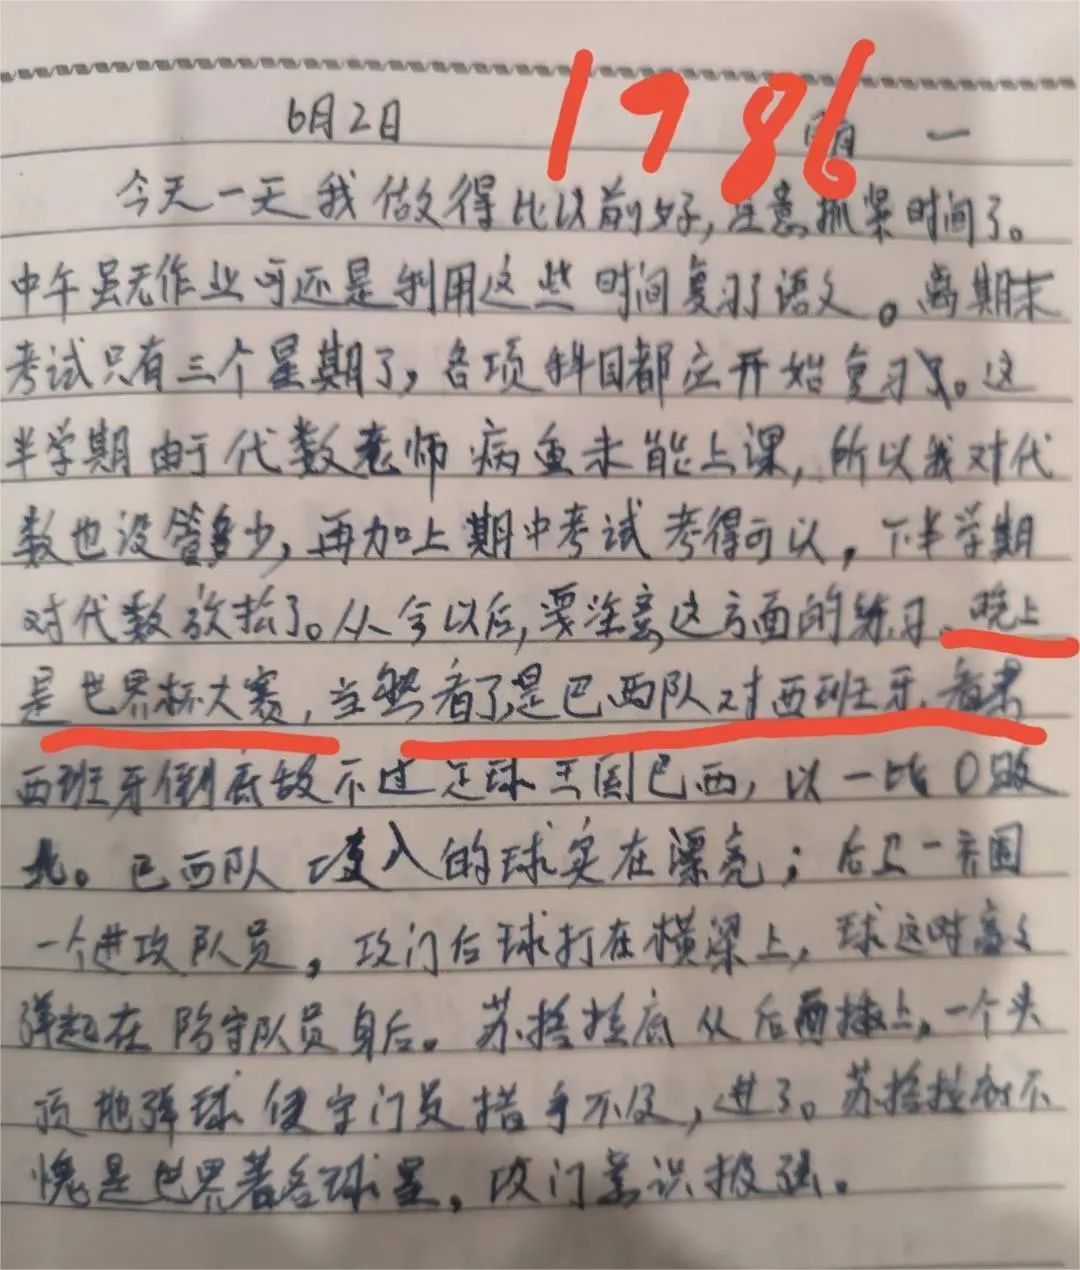 1986
6月2日 雨 一
今天一天我做得比以前好,注意抓紧时间了。
中午虽无作业可还是利用这些时间复习了语文。离期末
考试只有三个星期了,各项科目都应开始复习了。这
半学期由于代数老师病重未能上课,所以我对代
数也没管多少,再加上期中考试考得可以,下半学期
对代数放松了。从今以后,要注意这方面的练习。晚上
是世界杯大赛,当然看了,是巴西队对西班牙,看来
西班牙倒底敌不过足球王国巴西,以一比0败
北。巴西队攻入的球实在漂亮;后卫一齐围
一个进攻队员,攻门后球打在横梁上,球这时高高
弹起在防守队员身后。苏格拉底从后面插上,一个头
顶地弹球使守门员措手不及,进了。苏格拉底不
愧是世界著名球星,攻门意识极强。